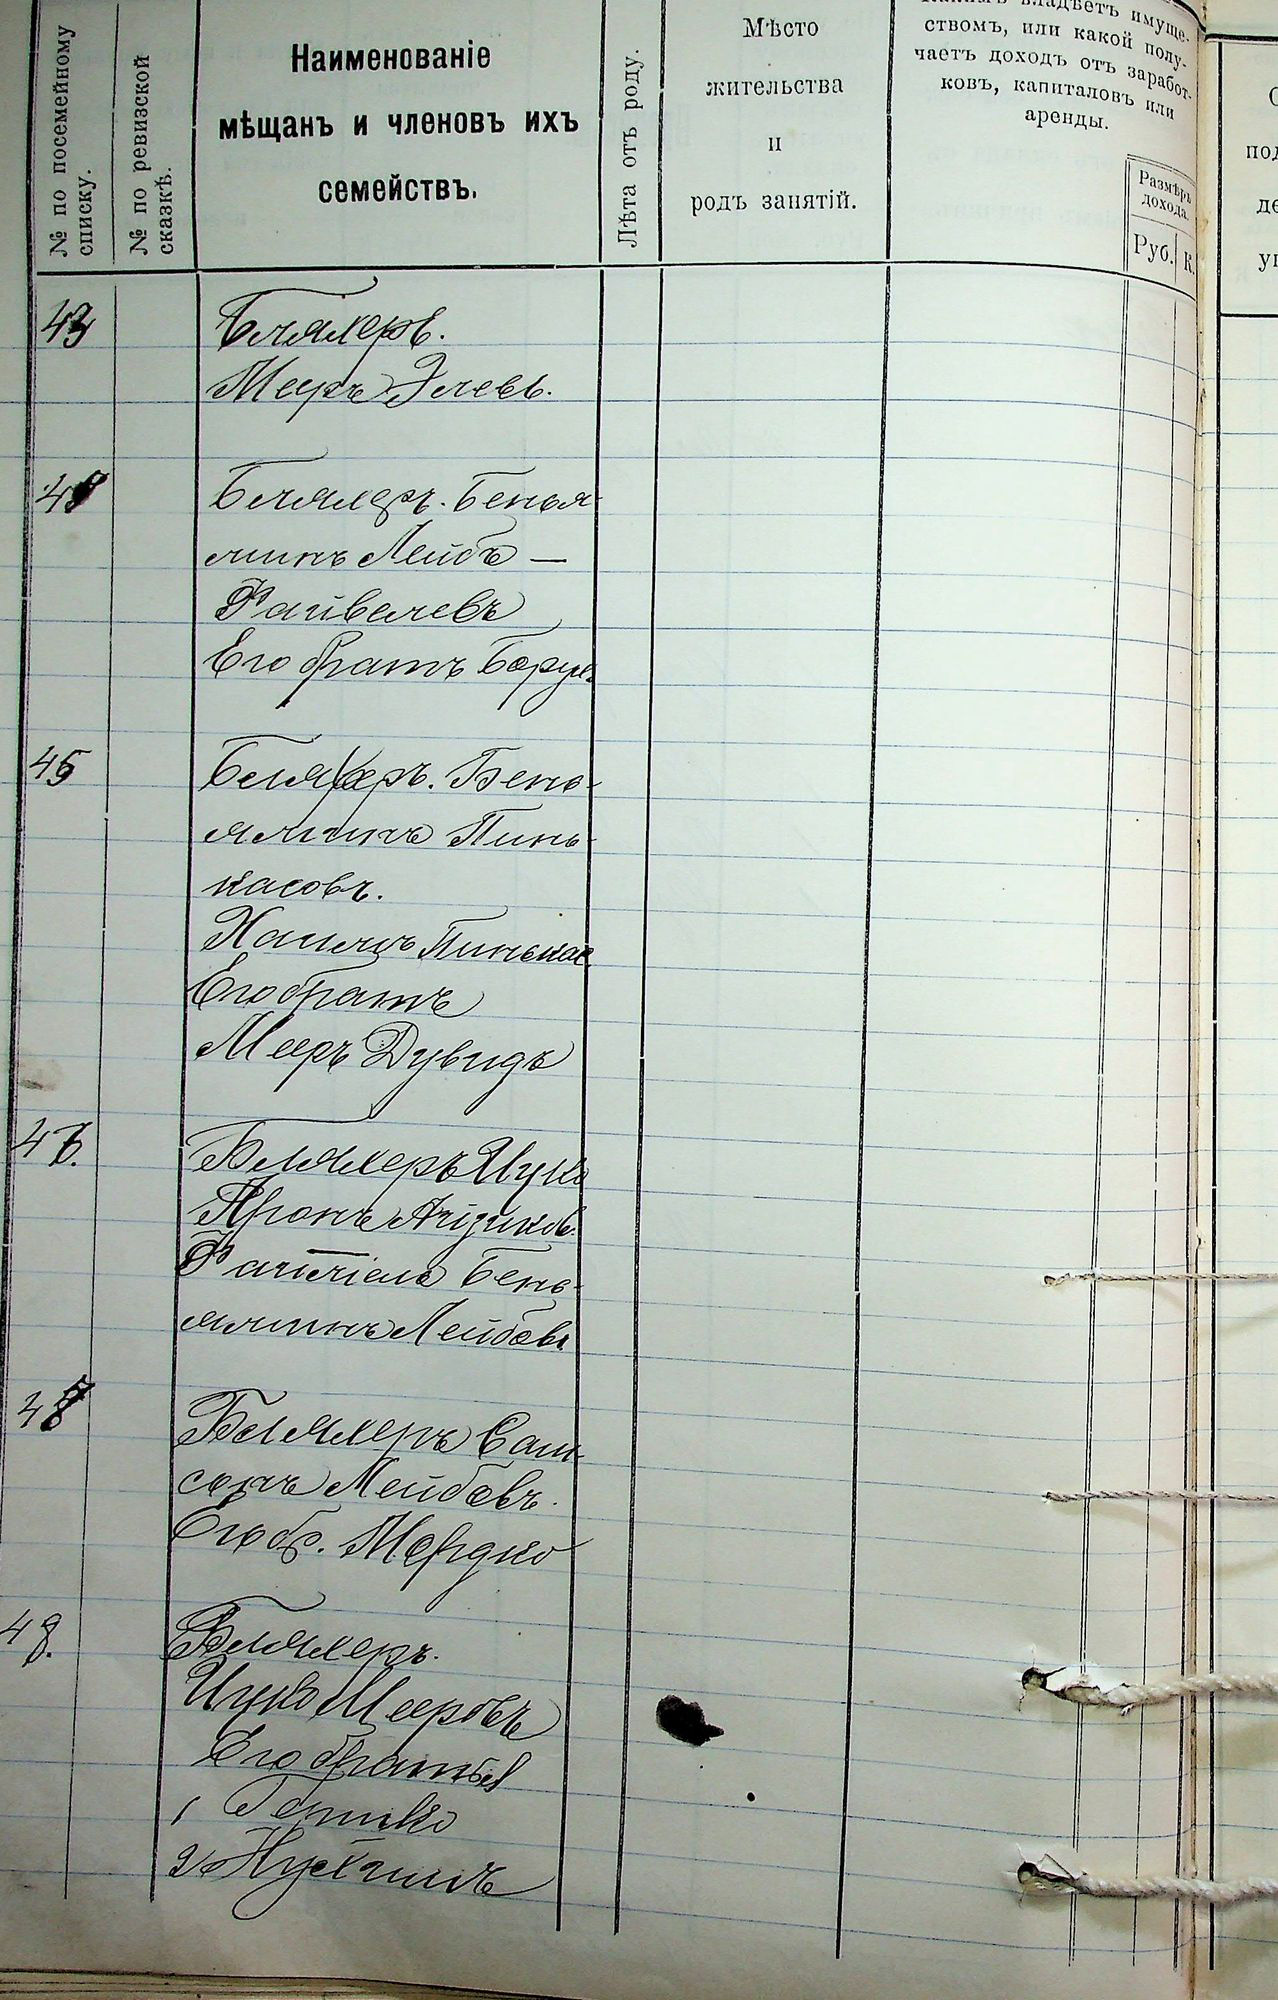 № по посемейному
списку.
№ по ревизской
сказкѣ.
Наименованіе
мѣщанъ и членовъ ихъ
семействъ.
Лѣта отъ роду.
Мѣсто
жительства
и
родъ занятій.
владѣетъ имуще-
ствомъ, или какой полу-
чаетъ доходъ отъ заработ-
ковъ, капиталовъ или
аренды.
Размѣръ
дохода.
Руб.
К.
43
Бляхеръ.
Мееръ Элевъ.
Бляхеръ. Бенья-
минъ Лейбъ —
Файвелевъ
Его братъ Борух
45
Бляхеръ. Бень-
яминъ Пинь-
касовъ.
Хаимъ Пинькас
Его братъ
Мееръ Дувидъ
Бляхеръ Ицко
Аронъ Айзиков.
Бень-
яминъ Лейбовъ
Бляхеръ Сам-
сонъ Лейбовъ.
Его бр. Мордко
48.
Бляхеръ.
Ицко Мееровъ
Его братья
1 Гершко
2 Нухимъ